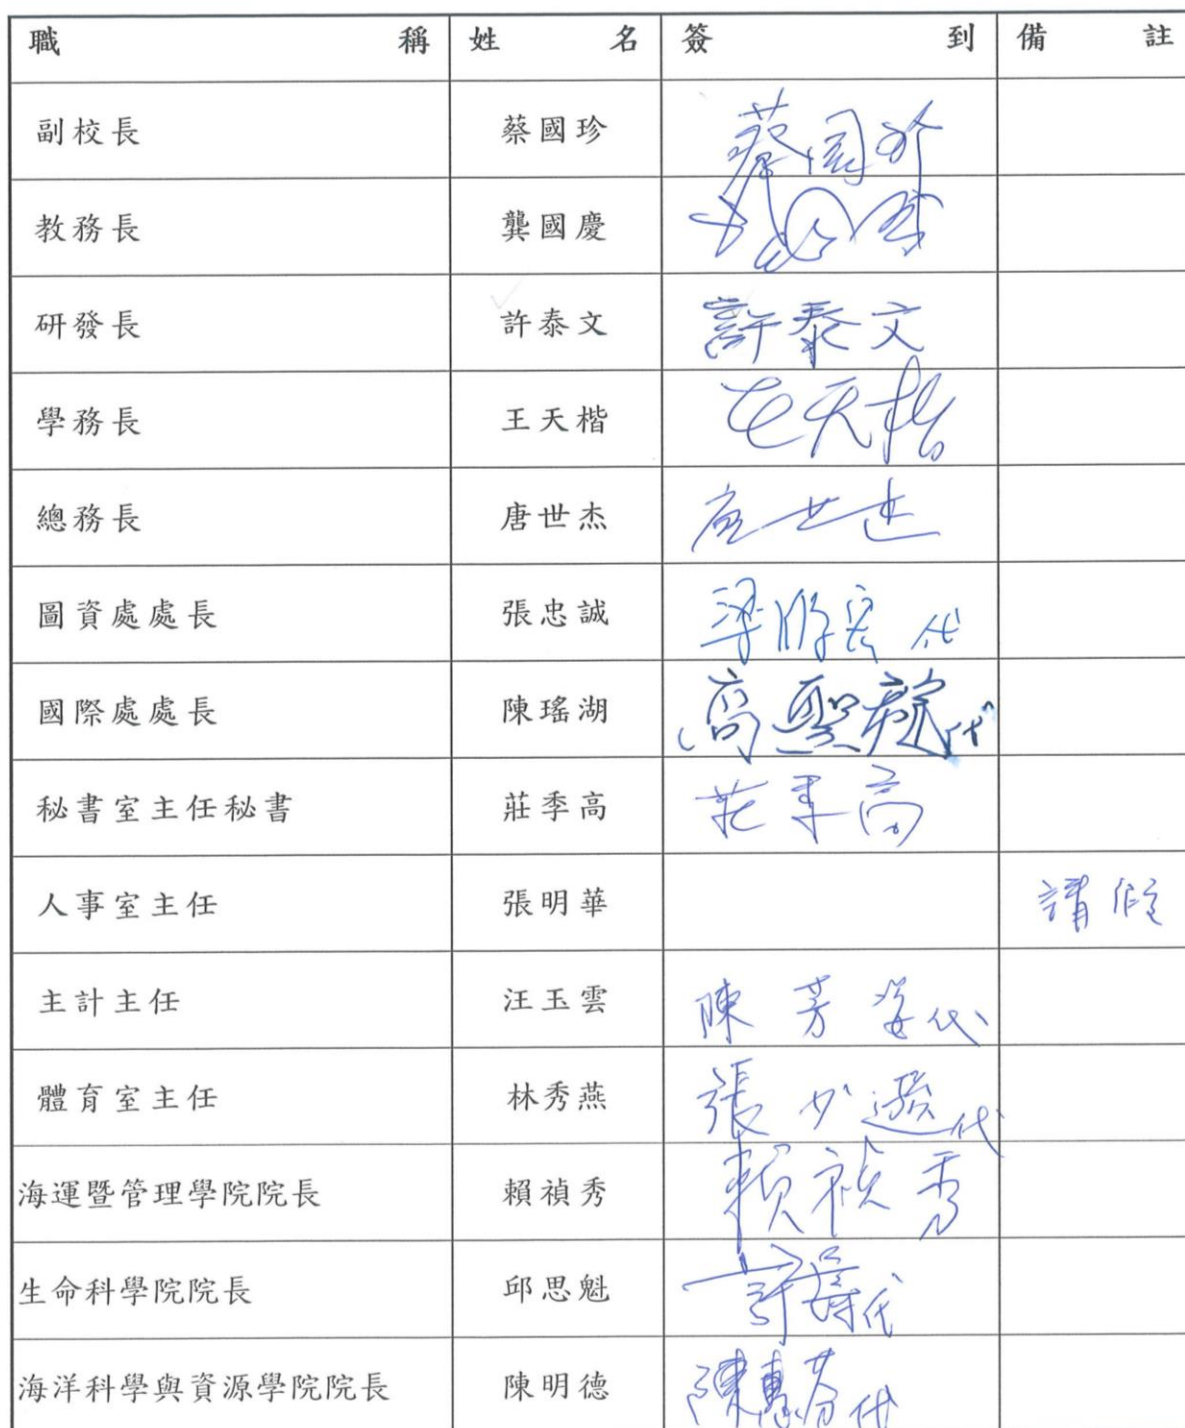 職稱 姓名 簽到 備註
副校長 蔡國珍 蔡國珍
教務長 龔國慶
研發長 許泰文 許泰文
學務長 王天楷 王天楷
總務長 唐世杰 唐世杰
圖資處處長 張忠誠 代
國際處處長 陳瑤湖 高聖龍代
秘書室主任秘書 莊季高 莊季高
人事室主任 張明華 請假
主計主任 汪玉雲 陳芳姿代
體育室主任 林秀燕 張少遜代
海運暨管理學院院長 賴禎秀 賴禎秀
生命科學院院長 邱思魁 許濤代
海洋科學與資源學院院長 陳明德 陳惠芬代